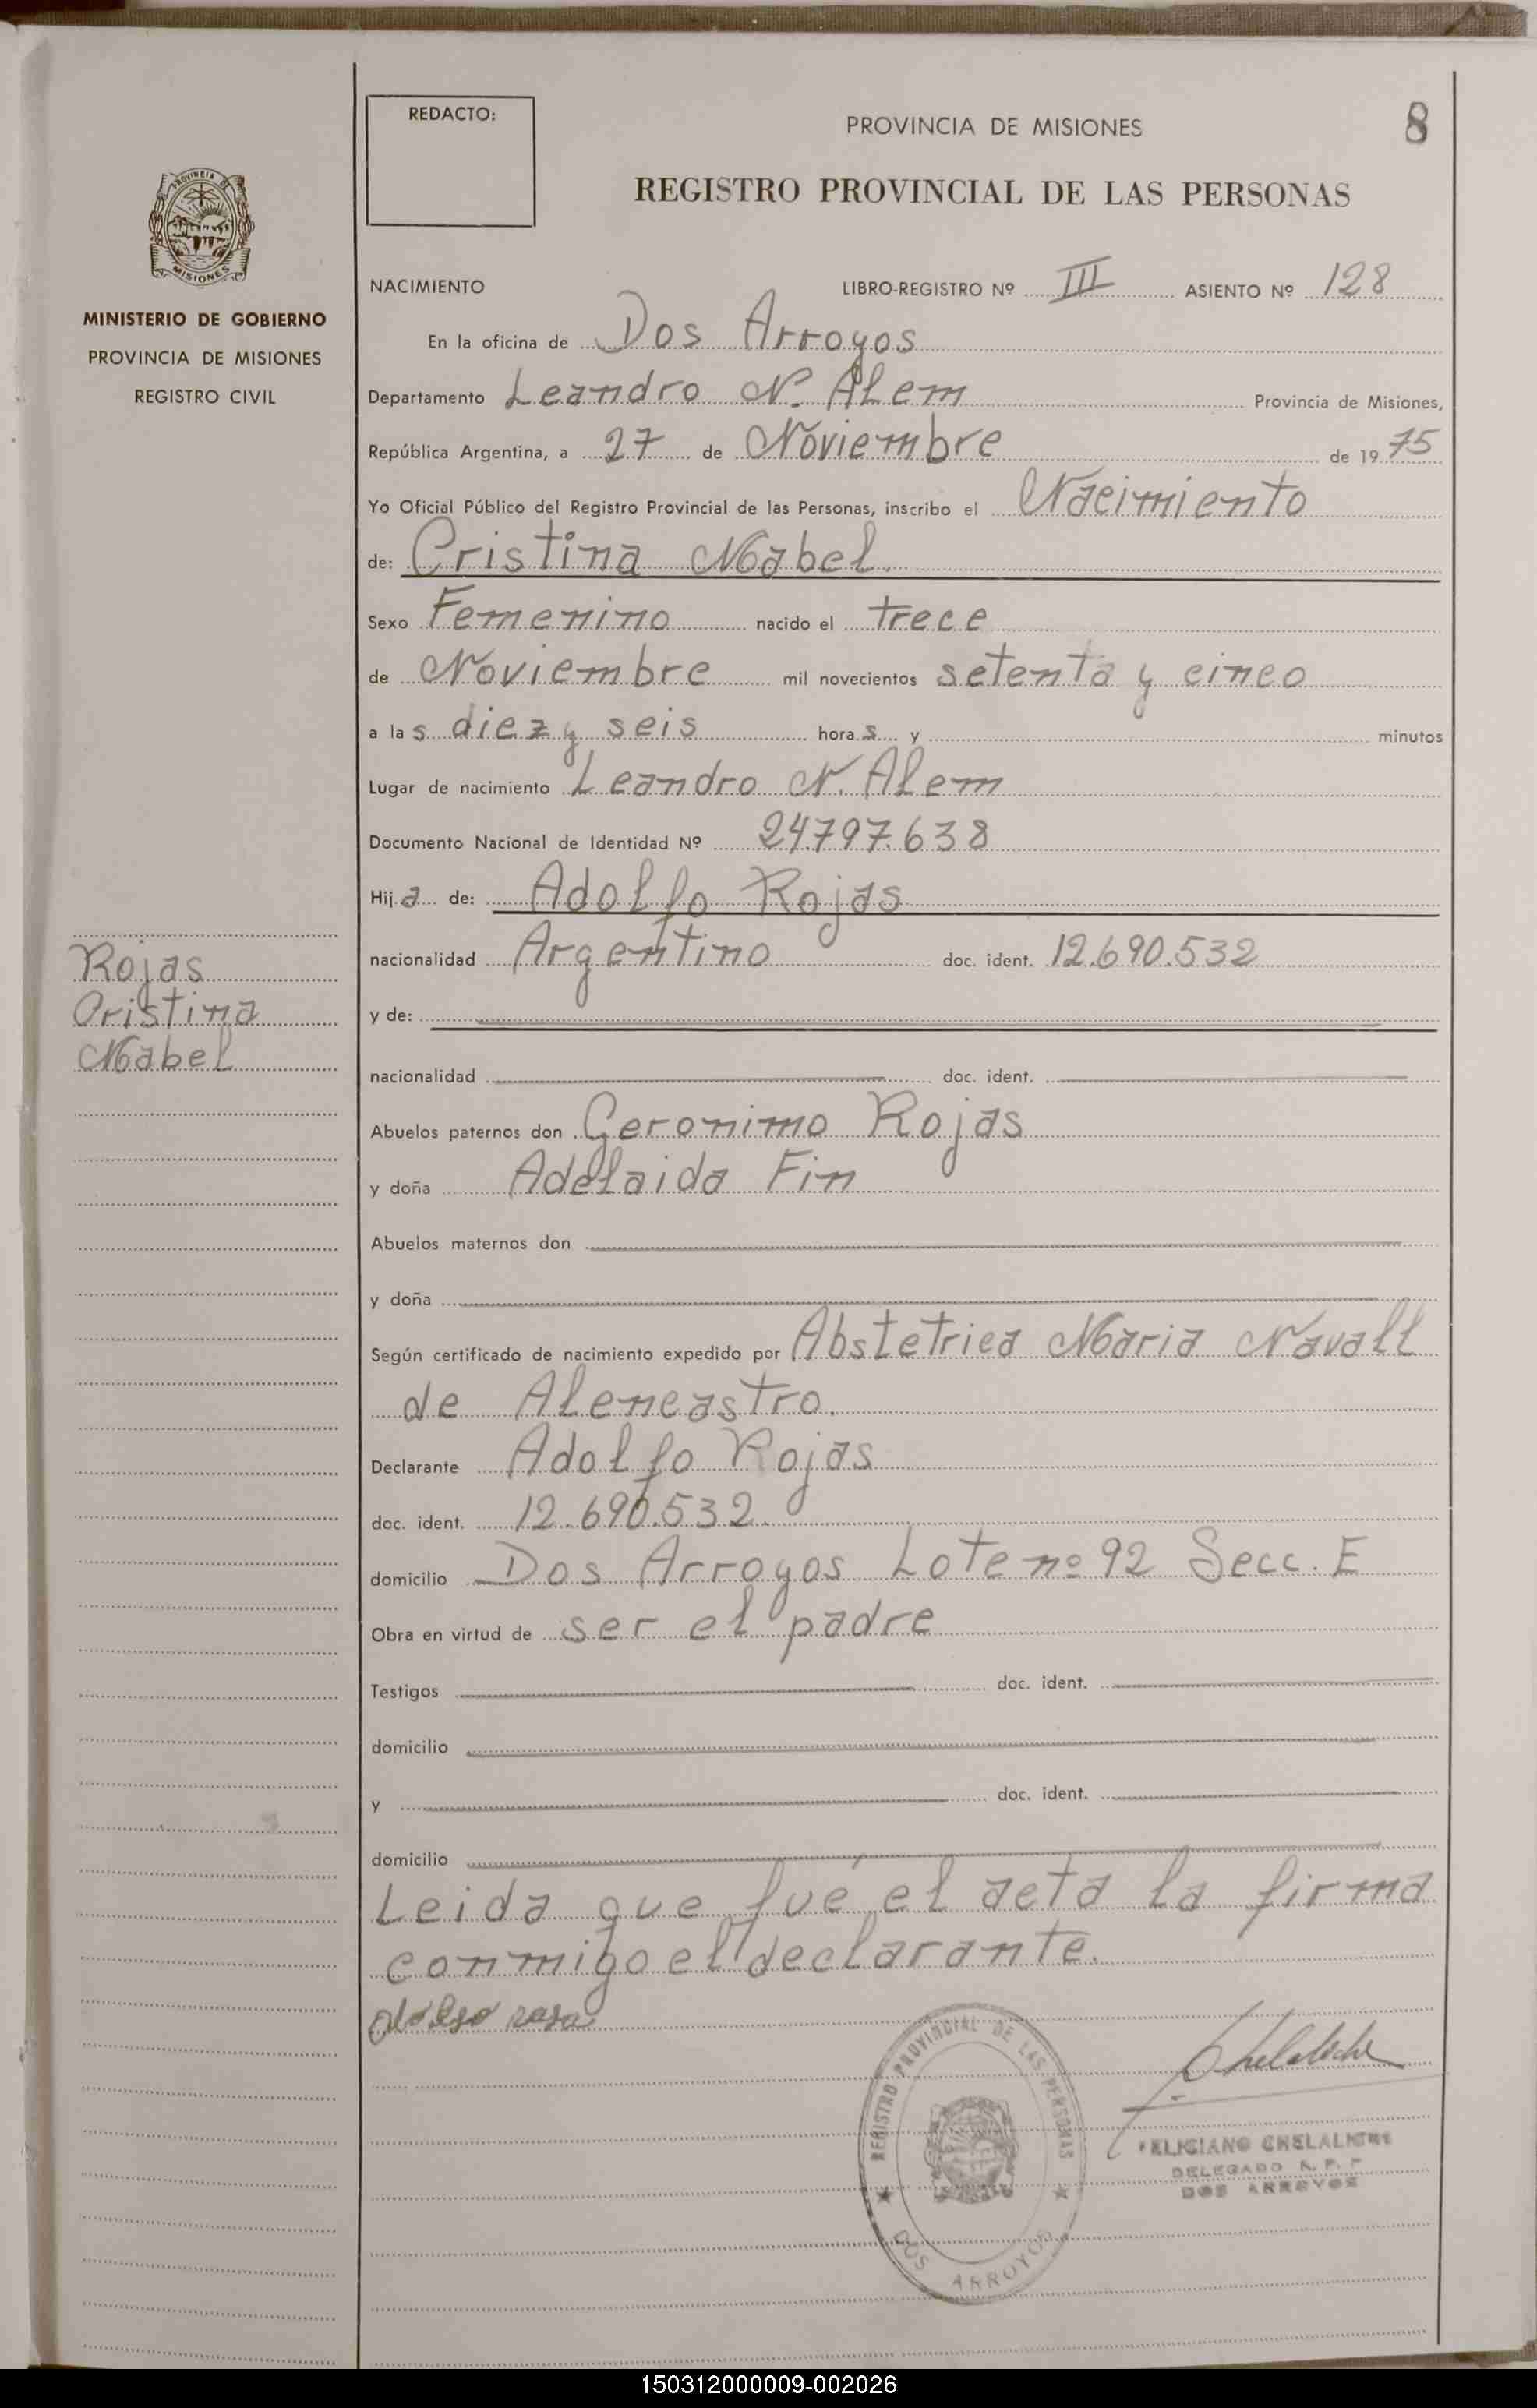 REDACTO:
PROVINCIA DE MISIONES
8
REGISTRO PROVINCIAL DE LAS PERSONAS
PROVINCIA
MISIONES
MINISTERIO DE GOBIERNO
PROVINCIA DE MISIONES
REGISTRO CIVIL
NACIMIENTO LIBRO-REGISTRO Nº III ASIENTO Nº 128
En la oficina de Dos Arroyos
Departamento Leandro N. Alem Provincia de Misiones,
República Argentina, a 27 de Noviembre de 1975
Yo Oficial Público del Registro Provincial de las Personas, inscribo el Nacimiento
de: Cristina Mabel.
Sexo Femenino nacido el trece
de Noviembre mil novecientos setenta y cinco
a las diez y seis horas y minutos
Lugar de nacimiento Leandro N. Alem
Documento Nacional de Identidad Nº 24.797.638
Hija de: Adolfo Rojas
nacionalidad Argentino doc. ident. 12.690.532
y de:
nacionalidad doc. ident.
Rojas
Cristina
Mabel
Abuelos paternos don Geronimo Rojas
y doña Adelaida Fin
Abuelos maternos don
y doña
Según certificado de nacimiento expedido por Abstetrica Maria Navall
de Alencastro.
Declarante Adolfo Rojas
doc. ident. 12.690.532.
domicilio Dos Arroyos Lote nº 92 Secc. E
Obra en virtud de ser el padre
Testigos doc. ident.
domicilio
y doc. ident.
domicilio
Leida que fué el acta la firma
conmigo el declarante.
REGISTRO PROVINCIAL DE LAS PERSONAS
DOS ARROYOS
FELICIANO CHELALICHE
DELEGADO R. P. P
DOS ARROYOS
150312000009-002026